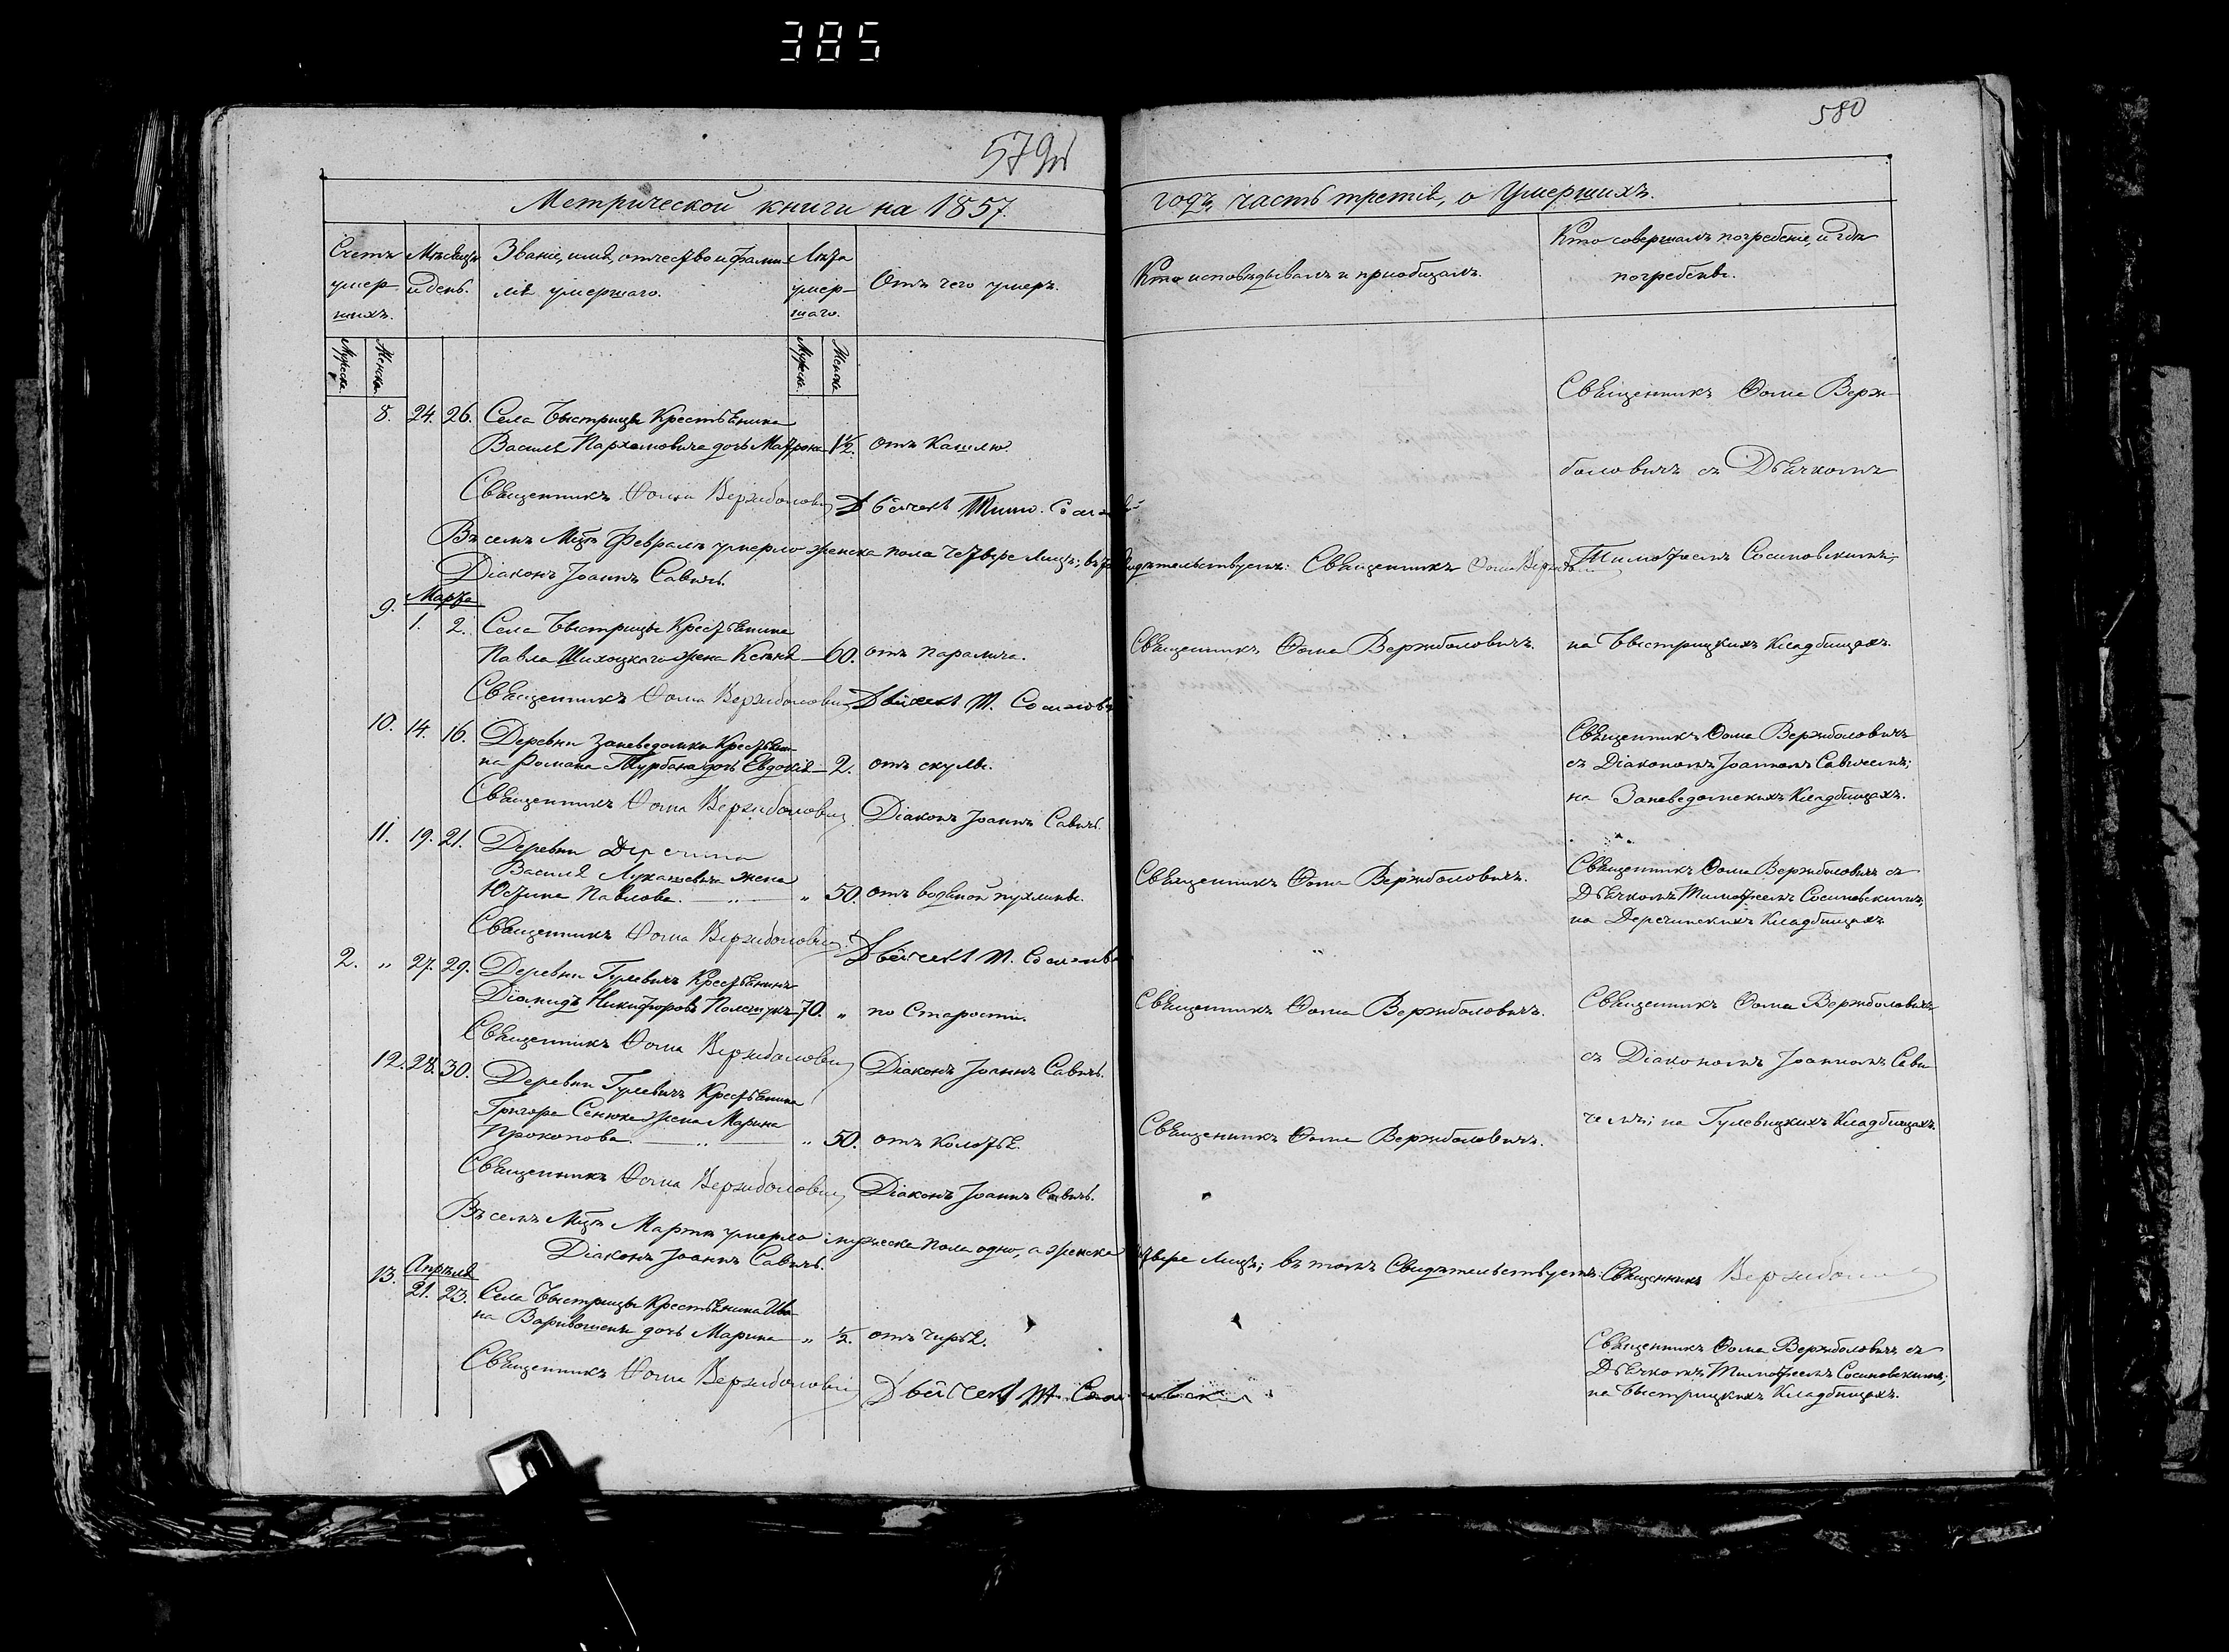 385
579
580
Метрической книги на 1857.
годъ, часть третія, о Умершихъ.
Счетъ умер-шихъ.
Мѣсяцъ и день.
Званіе, имя, отчество и фами-
лія умершаго.
Лѣта умер-шаго.
Отъ чего умеръ.
Кто исповѣдывалъ и пріобщалъ.
Кто совершалъ погребеніе, и гдѣ
погребены.
Мужеска.
Женска.
Мужеска.
Женска.
8. 24. 26. Села Быстрицы Крестьянина
Василія Пархомовича дочь Матрона 1½. отъ Кашлю.
Священникъ Ѳома Вержболовичъ Дьячекъ Тимо.
Священникъ Ѳома Верж-
боловичъ съ Дьячкомъ
Тимофеемъ Сосиновскимъ,
Въ семъ Мцѣ Февралѣ умерло женска пола четверо лицъ; въ
свидѣтельствуетъ: Священникъ Ѳома
Діаконъ Іоаннъ Савичъ.
Марта
9. 1. 2. Села Быстрицы Крестьянина
Павла Шихоцкаго жена Ксенія — 60. отъ паралича.
Священникъ Ѳома Вержболовичъ.
на Быстрицкихъ Кладбищахъ.
Священникъ Ѳома Вержболовичъ Дьячекъ Т.
10. 14. 16. Деревни Заневедомки Крестьяни-
на Романа Турбана дочь Евдокія — 2. отъ скулы.
Священникъ Ѳома Вержболовичъ
съ Діакономъ Іоанномъ Савичемъ;
на Заневедомскихъ Кладбищахъ.
Священникъ Ѳома Вержболовичъ Діаконъ Іоаннъ Савичъ.
11. 19. 21. Деревни Деречина
Василія Лукашевича жена
Юстина Павлова. — „ — „ 50. отъ водяной пухлины.
Священникъ Ѳома Вержболовичъ.
Священникъ Ѳома Вержболовичъ съ
Дьячкомъ Тимофеемъ Сосиновскимъ,
на Деречинскихъ Кладбищахъ
Священникъ Ѳома Вержболовичъ Дьячекъ Т.
2. „ 27. 29. Деревни Гулевичъ Крестьянинъ
Діомидъ Никифоровъ Полещукъ — 70. „ по Старости.
Священникъ Ѳома Вержболовичъ.
Священникъ Ѳома Вержболовичъ
съ Діакономъ Іоанномъ Сави-
чемъ; на Гулевицкихъ Кладбищахъ.
Священникъ Ѳома Вержболовичъ Діаконъ Іоаннъ Савичъ.
12. 28. 30. Деревни Гулевичъ Крестьянина
Григора Сенюка жена Марина
Прокопова. — „ — „ 50. отъ колотья.
Священникъ Ѳома Вержболовичъ.
Священникъ Ѳома Вержболовичъ Діаконъ Іоаннъ Савичъ.
Въ семъ Мцѣ Мартѣ умерло мужеска пола одно, а женска
лицъ; въ томъ Свидѣтельствуетъ: Священникъ
Діаконъ Іоаннъ Савичъ.
Апрѣля
13. 21. 23. Села Быстрицы Крестьянина Ива-
на дочь Марина — „ ½. отъ чирья.
Священникъ Ѳома Вержболовичъ съ
Дьячкомъ Тимофеемъ Сосиновскимъ;
на Быстрицкихъ Кладбищахъ.
Священникъ Ѳома Вержболовичъ Дьячекъ Т.